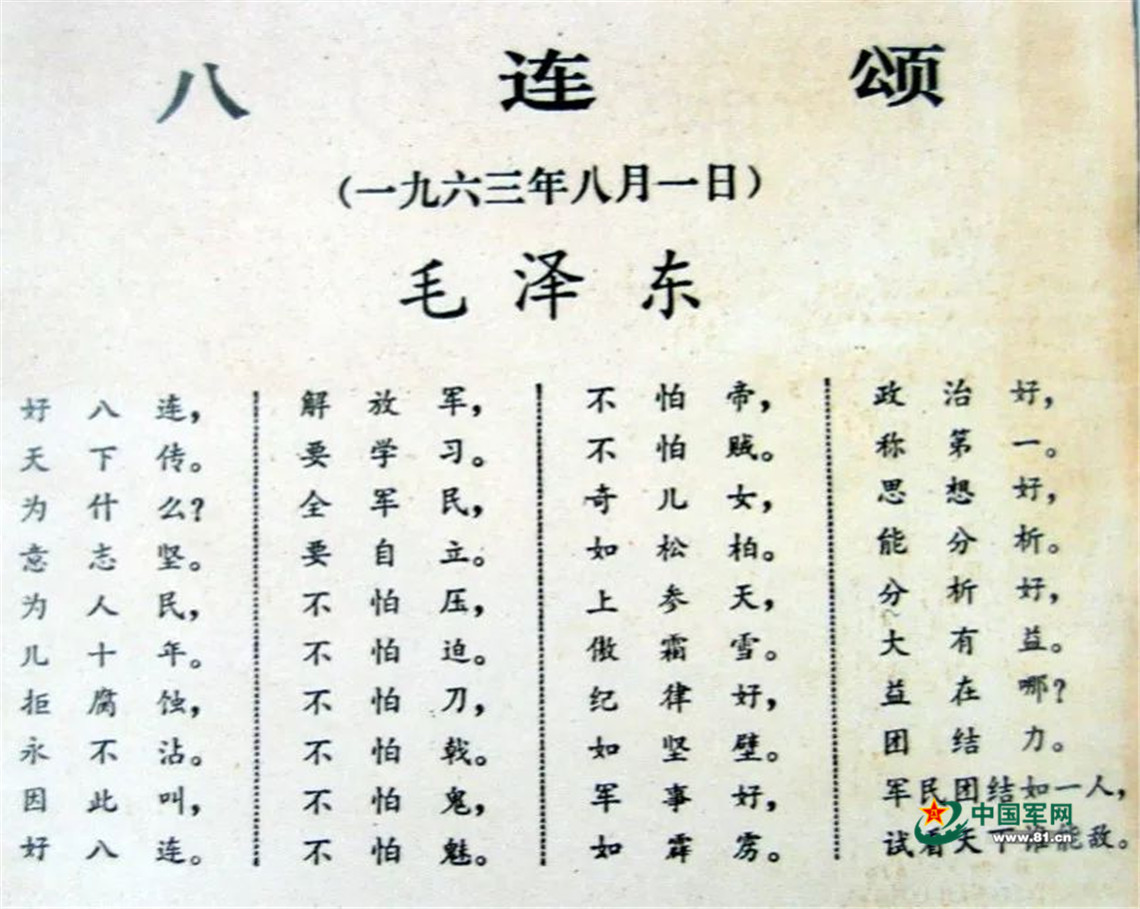 八连颂
(一九六三年八月一日)
毛泽东
好八连,
天下传。
为什么?
意志坚。
为人民,
几十年。
拒腐蚀,
永不沾。
因此叫,
好八连。
解放军,
要学习。
全军民,
要自立。
不怕压,
不怕迫。
不怕刀,
不怕戟。
不怕鬼,
不怕魅。
不怕帝,
不怕贼。
奇儿女,
如松柏。
上参天,
傲霜雪。
纪律好,
如坚壁。
军事好,
如霹雳。
政治好,
称第一。
思想好,
能分析。
分析好,
大有益。
益在哪?
团结力。
军民团结如一人,
试看天下谁能敌。
中国军网
www.81.cn